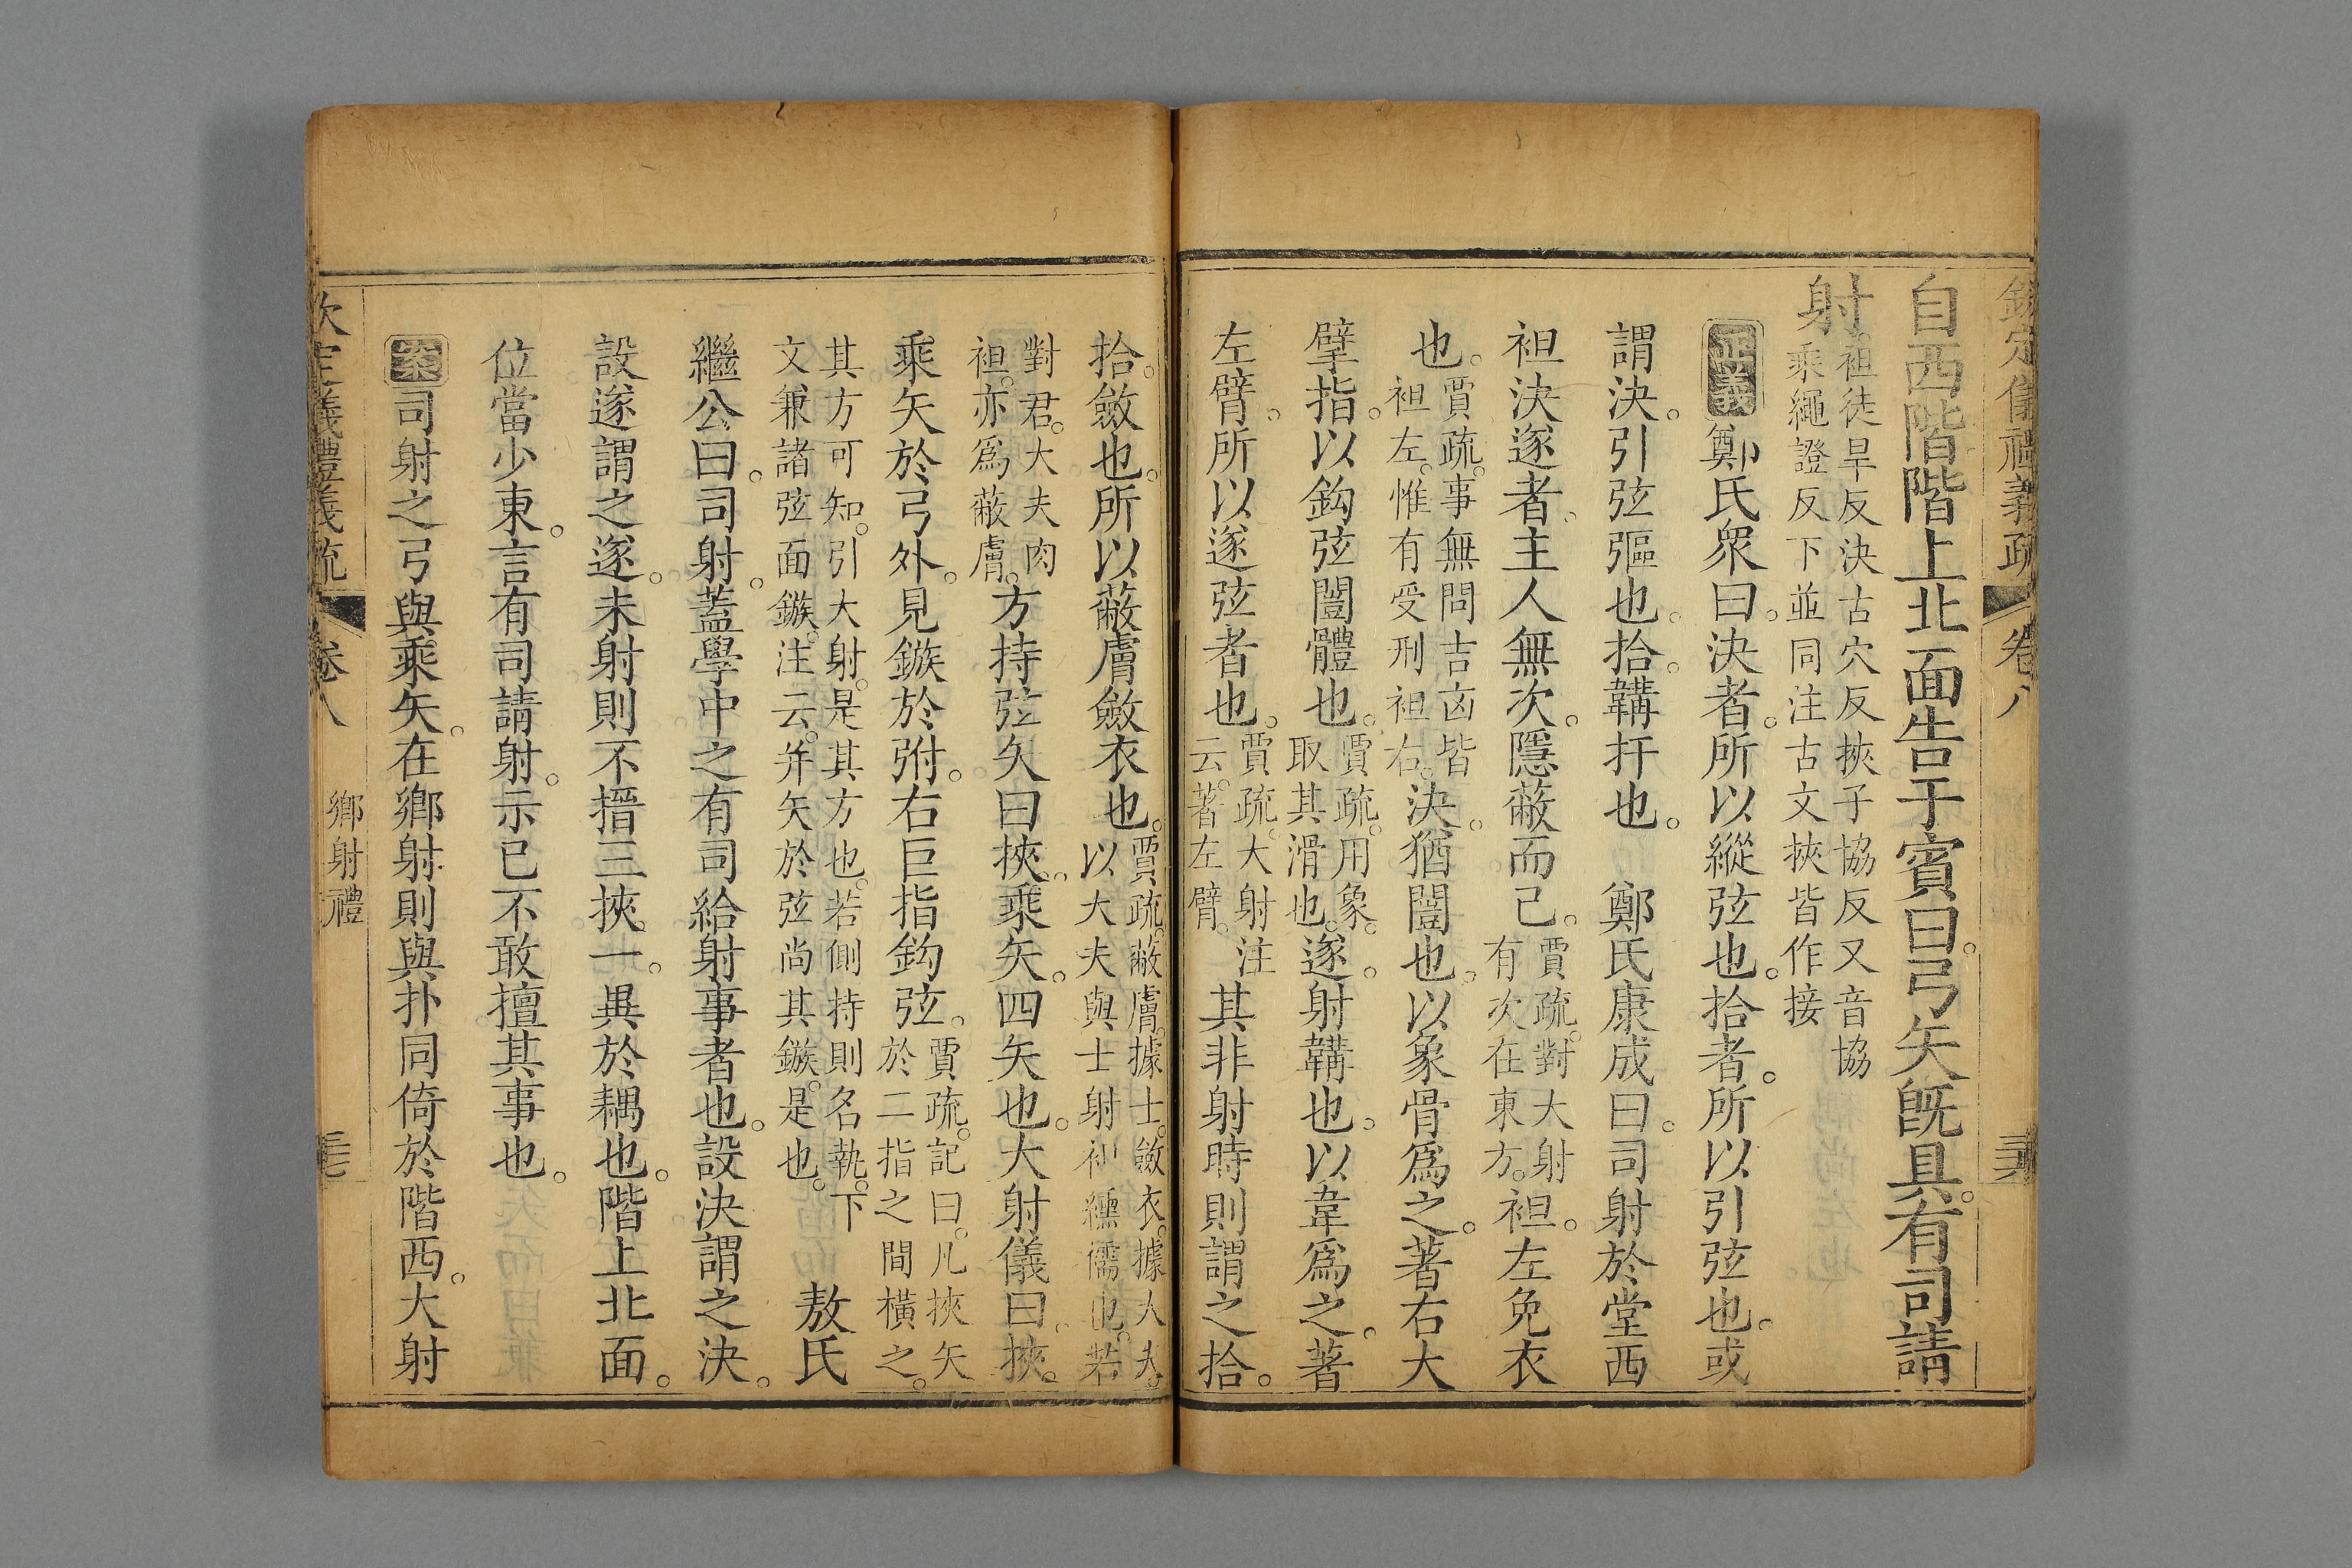 欽定儀禮義疏 卷八 三六
自西階階上北面告于賓曰。弓矢旣具。有司請
射。袒徒旱反決古穴反挾子協反又音協
乘繩證反下並同注古文挾皆作接
正義鄭氏衆曰。決者。所以縱弦也。拾者。所以引弦也。或
謂決。引弦彄也。拾。韝扞也。 鄭氏康成曰。司射於堂西
袒決遂者。主人無次。隱蔽而已。賈疏。對大射
有次在東方。袒。左免衣
也。賈疏。事無問吉凶皆
袒左。惟有受刑袒右。決。猶闓也。以象骨爲之。著右大
擘指。以鉤弦闓體也。賈疏。用象。
取其滑也。遂。射韝也。以韋爲之。著
左臂。所以遂弦者也。賈疏。大射注
云。著左臂。其非射時則謂之拾。
拾。斂也。所以蔽膚斂衣也。賈疏。蔽膚。據士。斂衣。據大夫。
以大夫與士射袒纁襦也。若
對君。大夫肉
袒。亦爲蔽膚。方持弦矢曰挾。乘矢。四矢也。大射儀曰。挾。
乘矢於弓外。見鏃於弣。右巨指鉤弦。賈疏。記曰。凡挾矢
於二指之間橫之。
其方可知。引大射。是其方也。若側持則名執。下
文兼諸弦面鏃。注云。并矢於弦尚其鏃。是也。 敖氏
繼公曰。司射。蓋學中之有司給射事者也。設決謂之決。
設遂謂之遂。未射則不搢三挾一。異於耦也。階上北面。
位當少東。言有司請射。示已不敢擅其事也。
案司射之弓與乘矢。在鄉射則與扑同倚於階西。大射
欽定義禮義疏 卷八 鄉射禮 三七